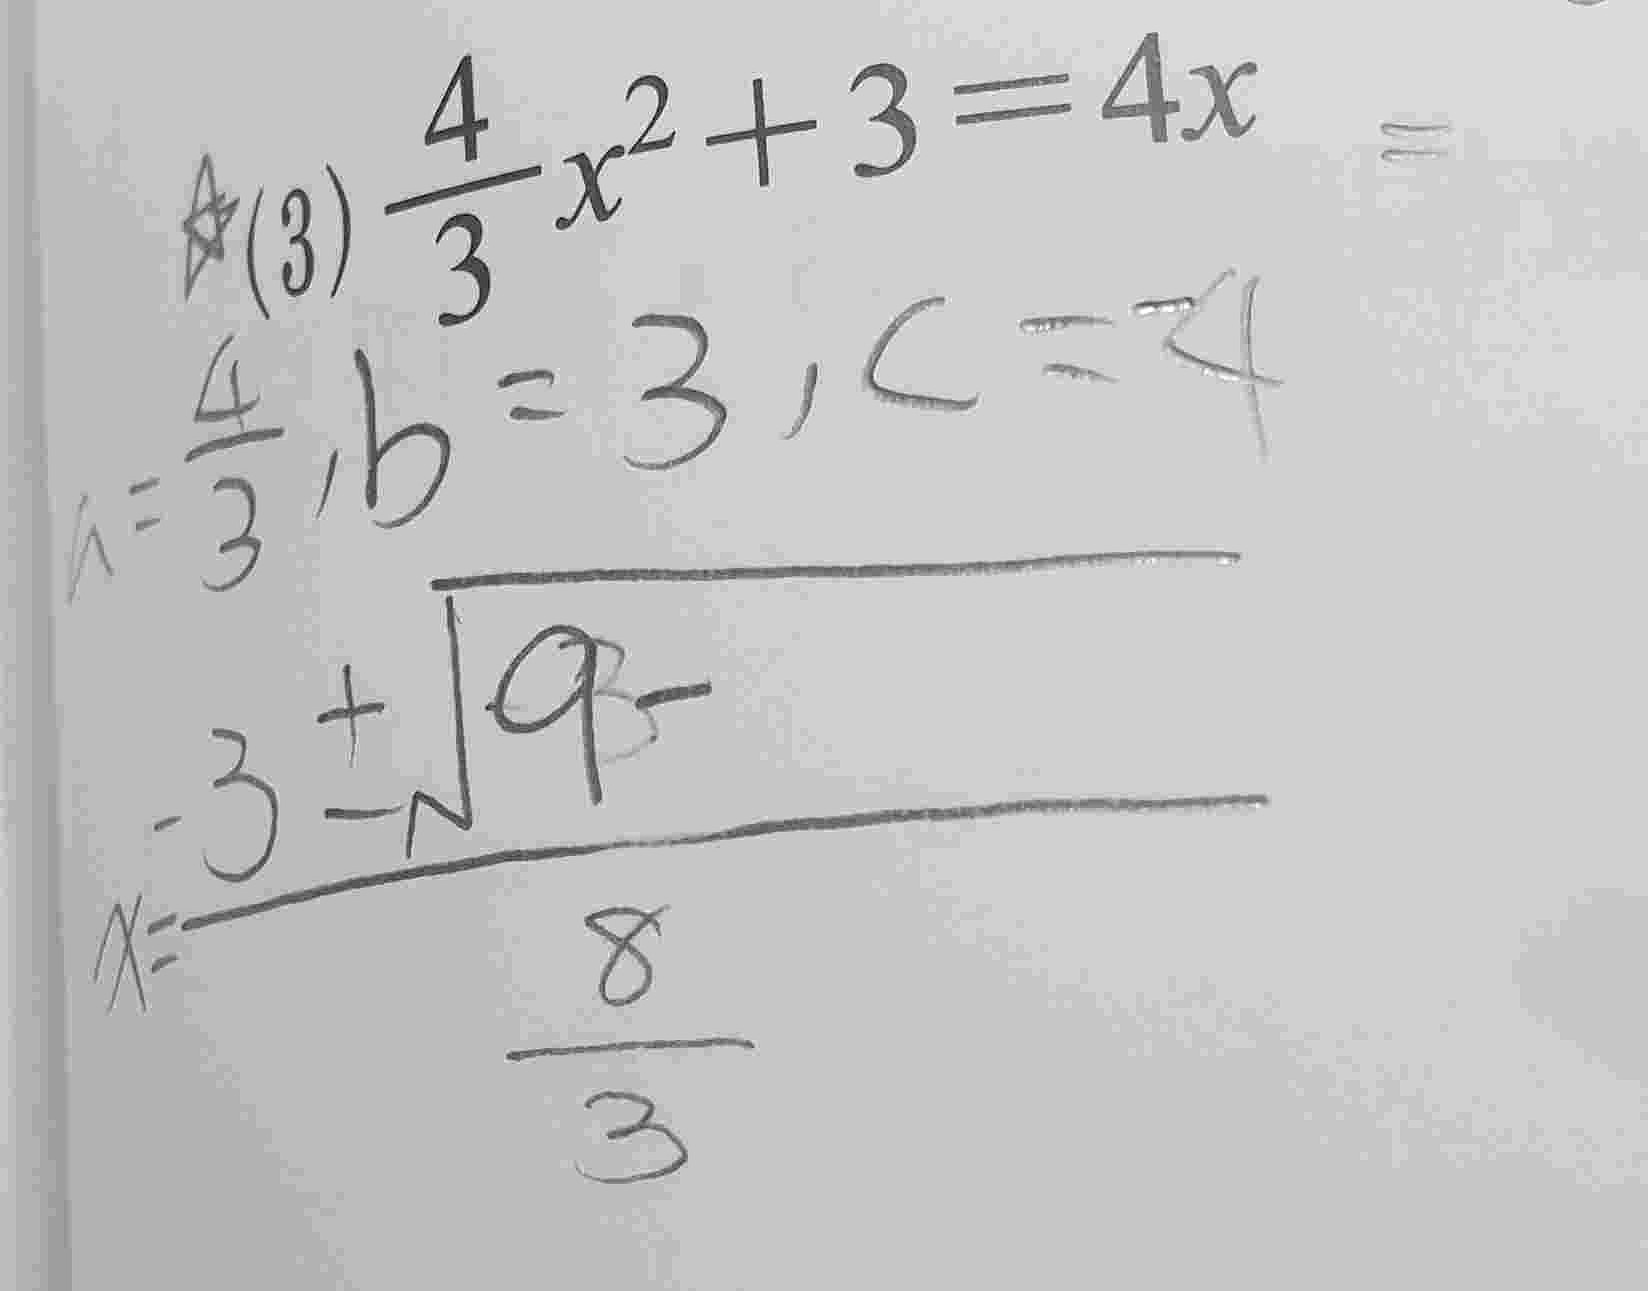 ☆(3) 4/3 x² + 3 = 4x =
a = 4/3, b = 3, c = -4
x = (-3 ± √(9 -)) / (8/3)